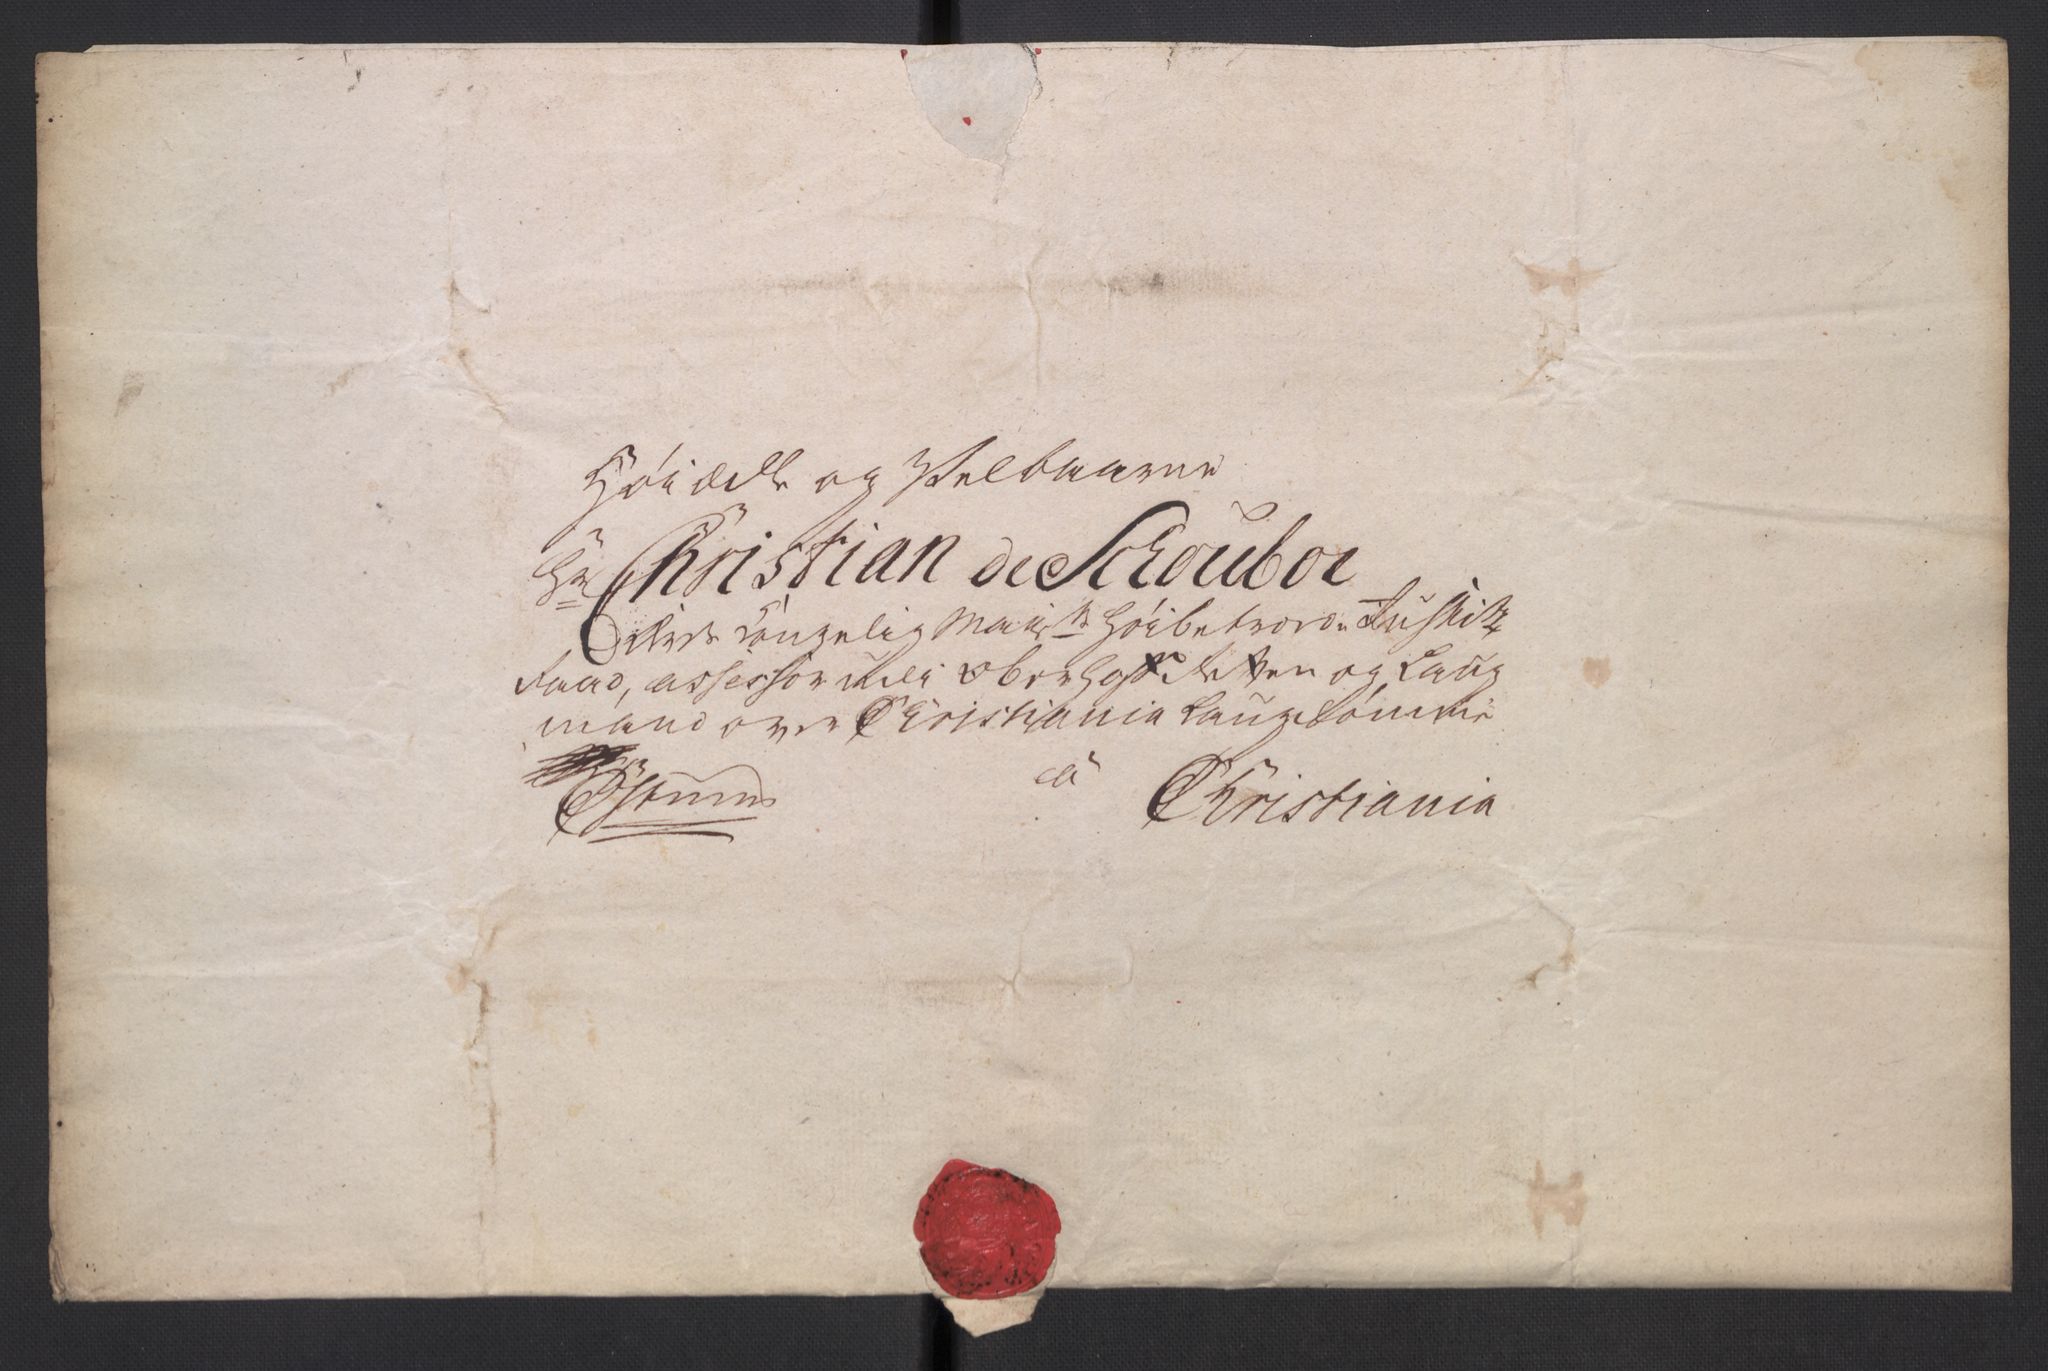 Høiædle og Velbaarne
Hr Christian de Schouboe
Deres Kongelig Mai:ts Høibetroede Justitz
Raad, assessor udi Oberhoff Retten og Laug
mand over Christiania Laugdømme
à Christiania